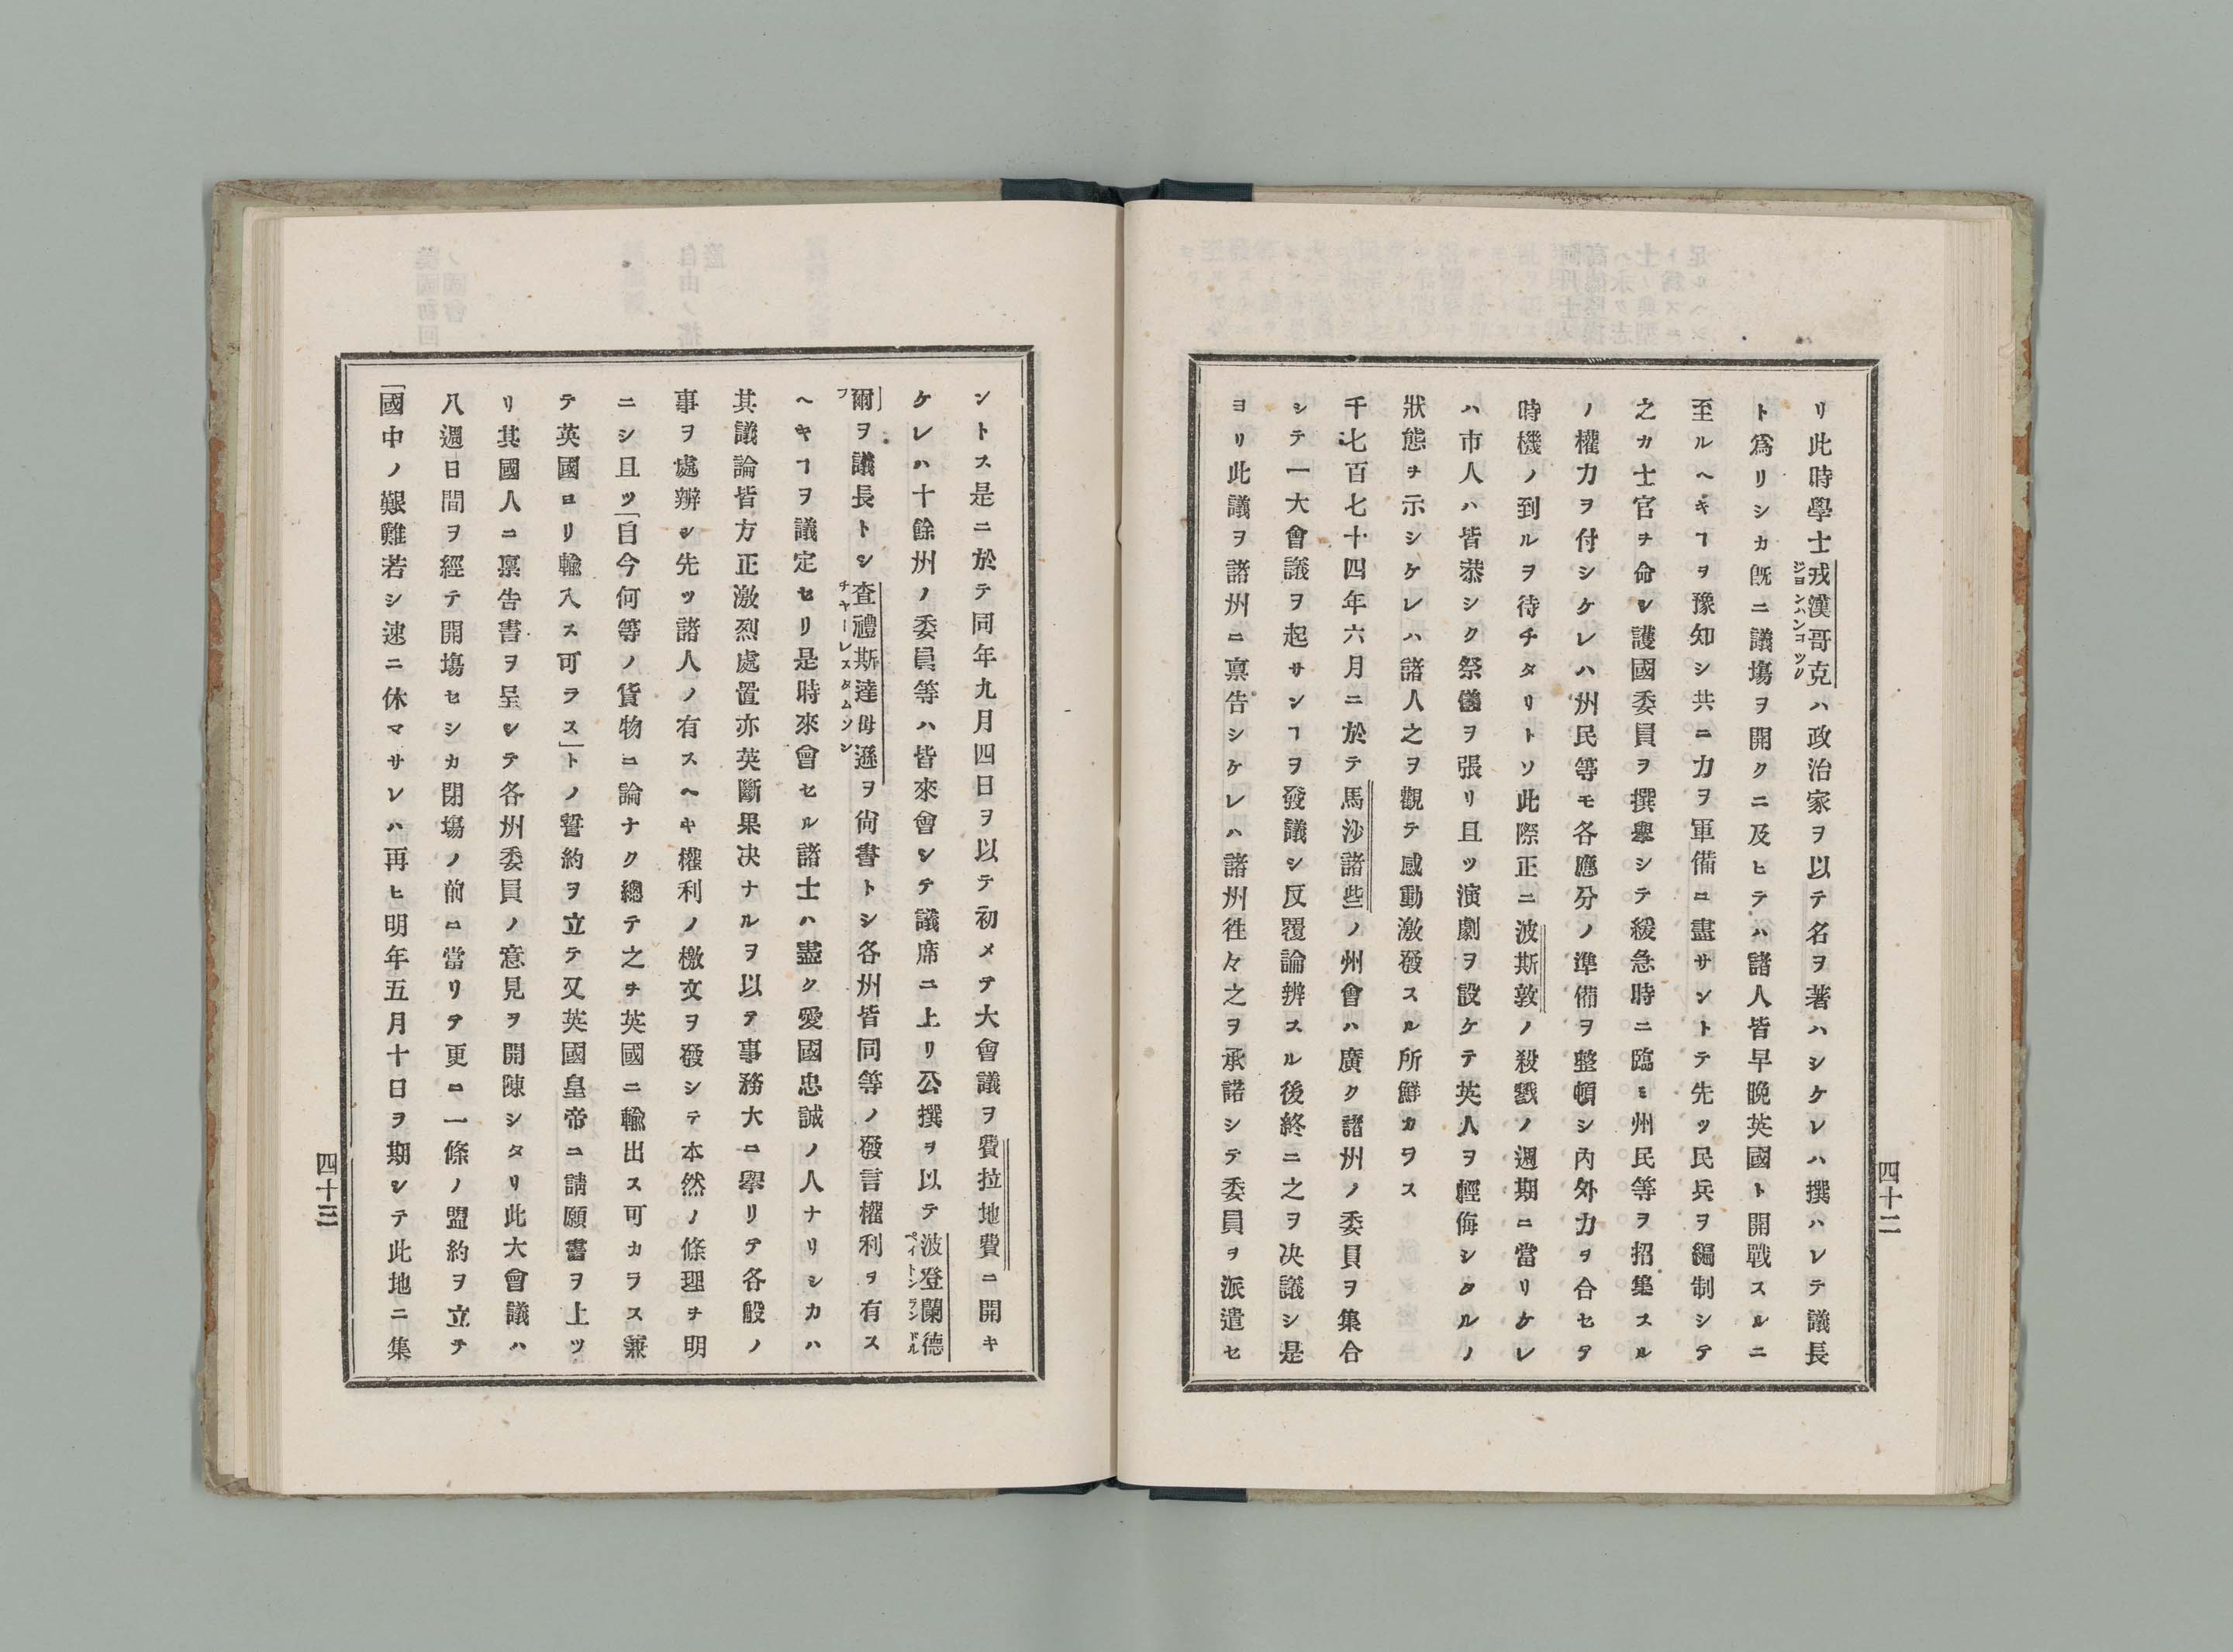 リ此時學士戎漢哥克ハ政治家ヲ以テ名ヲ著ハシケレハ撰ハレテ議長
ジヨンハンコツク
ト爲リシカ旣ニ議塲ヲ開クニ及ヒテハ諸人皆早晩英國ト開戰スルニ
至ルヘキヿヲ豫知シ共ニ力ヲ軍備ニ盡サントテ先ッ民兵ヲ編制シテ
之カ士官ヲ命シ護國委員ヲ撰擧シテ緩急時ニ臨ミ州民等ヲ招集スル
ノ權力ヲ付シケレハ州民等モ各應分ノ準備ヲ整頓シ內外力ヲ合セテ
時機ノ到ルヲ待チタリトソ此際正ニ波斯敦ノ殺戮ノ週期ニ當リケレ
ハ市人ハ皆恭シク祭儀ヲ張リ且ッ演劇ヲ設ケテ英人ヲ輕侮シタルノ
狀態ヲ示シケレハ諸人之ヲ觀テ感動激發スル所鮮カヲス
千七百七十四年六月ニ於テ馬沙諸些ノ州會ハ廣ク諸州ノ委員ヲ集合
シテ一大會議ヲ起サンヿヲ發議シ反覆論辨スル後終ニ之ヲ决議シ是
ヨリ此議ヲ諸州ニ稟告シケレハ諸州徃々之ヲ承諾シテ委員ヲ派遣セ
四十二
ントス是ニ於テ同年九月四日ヲ以テ初メテ大會議ヲ費拉地費ニ開キ
ケレハ十餘州ノ委員等ハ皆來會シテ議席ニ上リ公撰ヲ以テ波登蘭德
ペイトンランドル
爾ヲ議長トシ査禮斯達母遜ヲ尙書トシ各州皆同等ノ發言權利ヲ有ス
フ チヤーレスタムソン
ヘキヿヲ議定セリ是時來會セル諸士ハ盡ク愛國忠誠ノ人ナリシカハ
其議論皆方正激烈處置亦英斷果决ナルヲ以テ事務大ニ擧リテ各般ノ
事ヲ處辨シ先ッ諸人ノ有スヘキ權利ノ檄文ヲ發シテ本然ノ條理ヲ明
ニシ且ッ「自今何等ノ貨物ニ論ナク總テ之ヲ英國ニ輸出ス可カラス兼
テ英國ヨリ輸入ス可ラス」トノ誓約ヲ立テ又英國皇帝ニ請願書ヲ上ッ
リ其國人ニ稟告書ヲ呈シテ各州委員ノ意見ヲ開陳シタリ此大會議ハ
八週日間ヲ經テ開塲セシカ閉塲ノ前ニ當リテ更ニ一條ノ盟約ヲ立テ
「國中ノ艱難若シ速ニ休マサレハ再ヒ明年五月十日ヲ期シテ此地ニ集
四十三